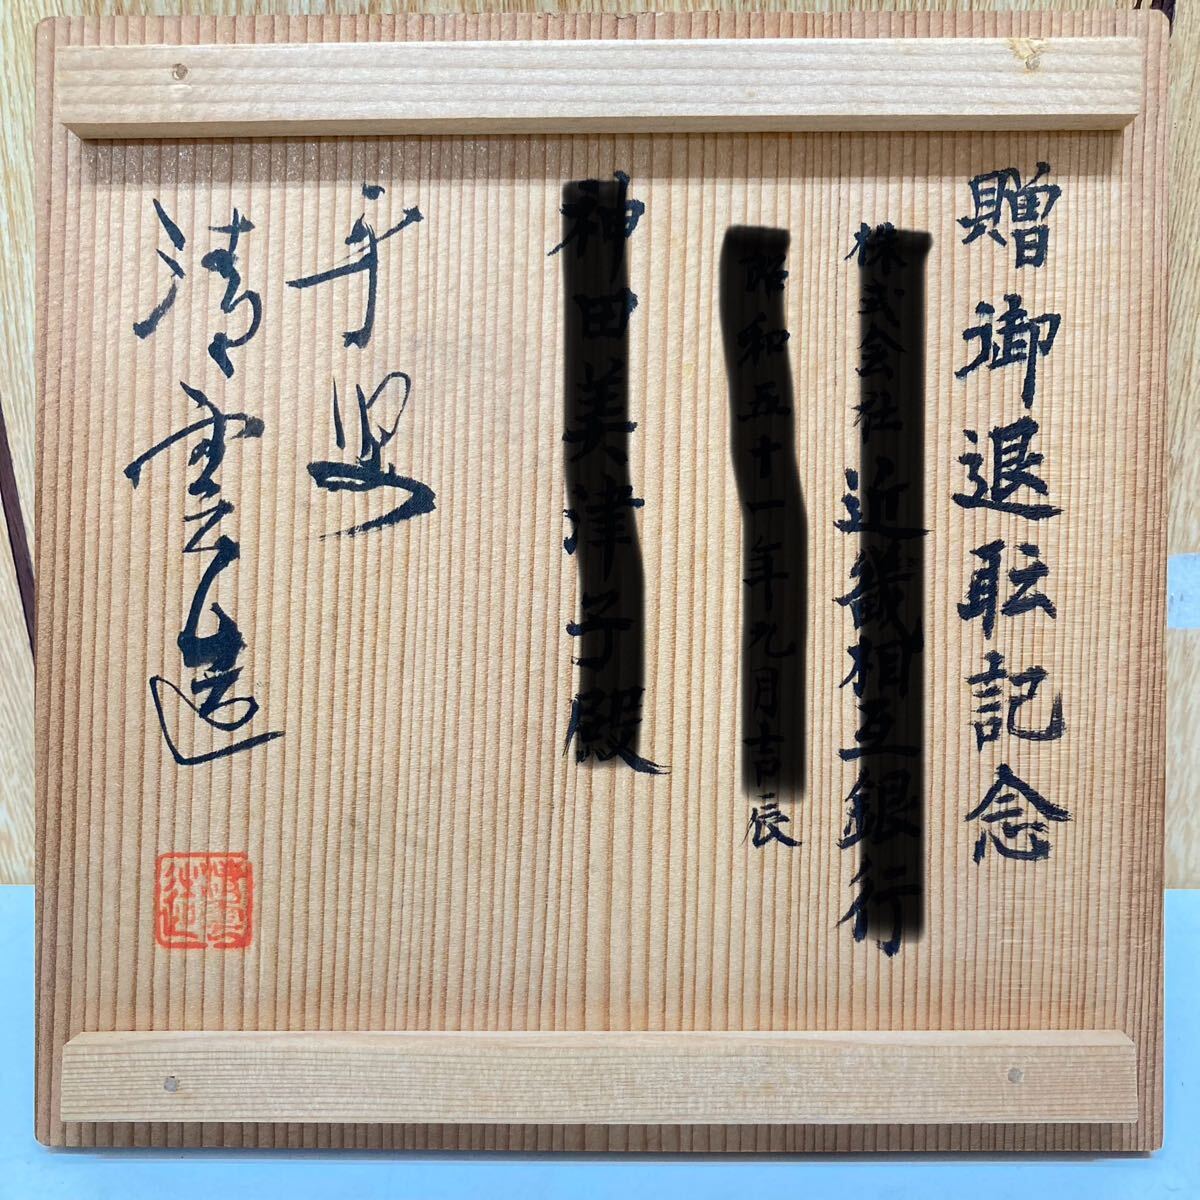 贈御退耺記念
株式会社近畿相互銀行
昭和五十一年九月吉辰
神田美津子殿
平安
清雲造